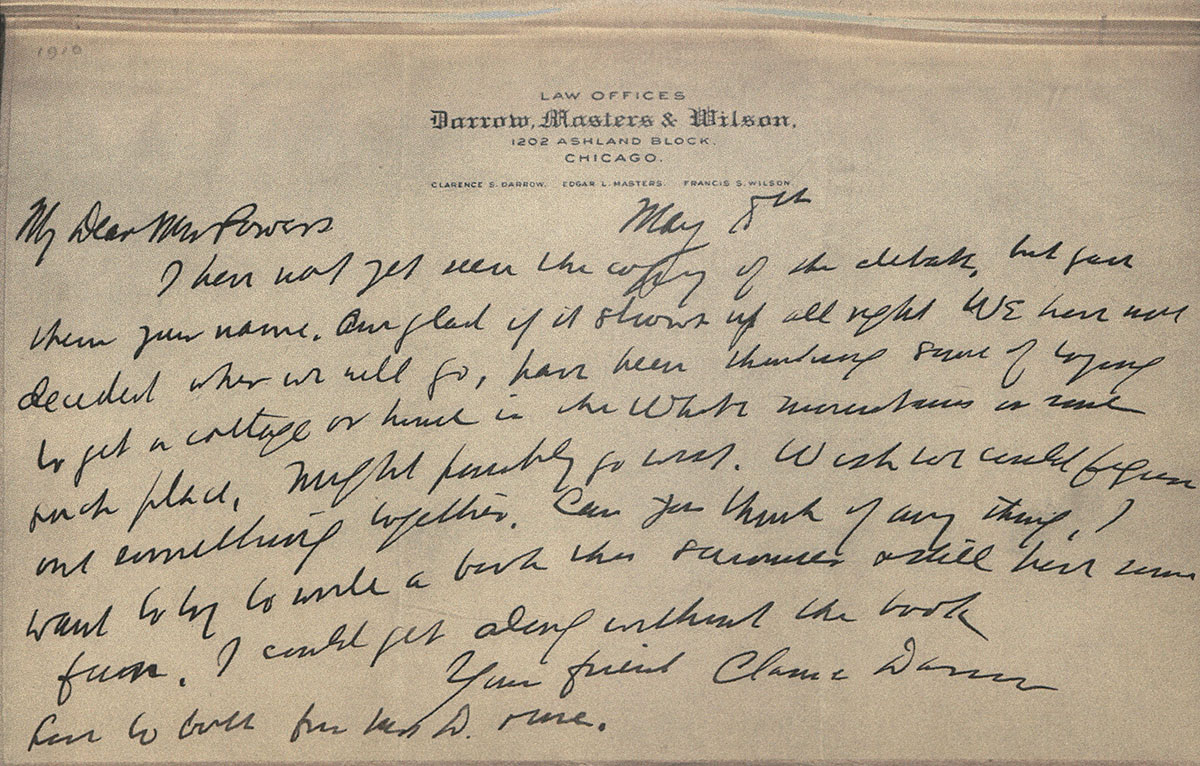 1910
LAW OFFICES
Darrow, Masters & Wilson,
1202 ASHLAND BLOCK,
CHICAGO.
CLARENCE S. DARROW. EDGAR L. MASTERS. FRANCIS S. WILSON.
My Dear Mr Powers
May 8th
I have not yet seen the copy of the debate, but gave
them your name. Am glad if it shows up all right WE have not
decided where we will go, have been thinking some of trying
to get a cottage or hotel in the White mountains or some
such place. Might possibly go west. Wish we could figure
out something together. Can you think of any thing, I
want to try to write a book this summer & still have some
fun. I could get along without the book
Your friend Clarence Darrow
Love to both from Mrs D. & me.